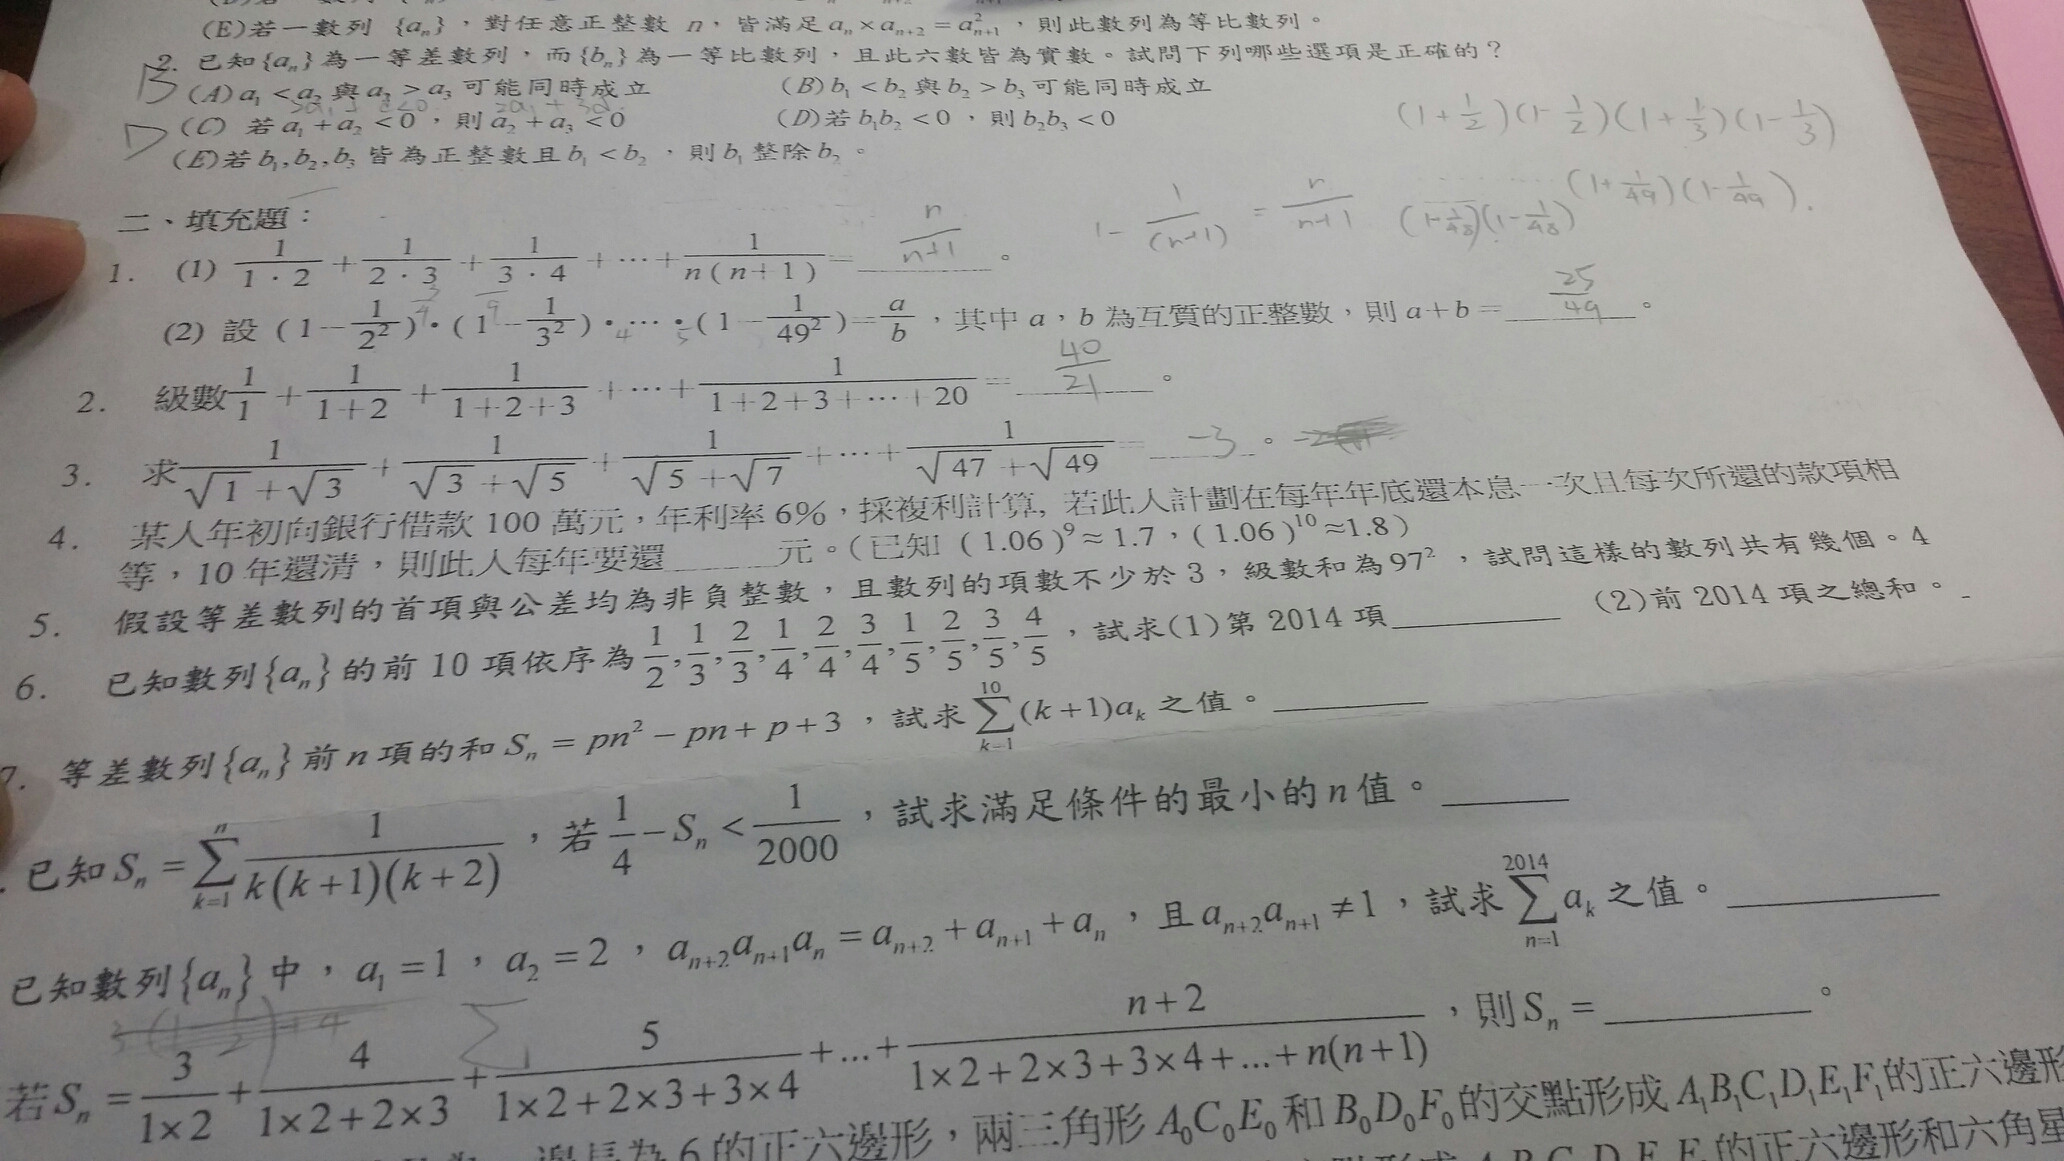 (E)若一數列 {aₙ},對任意正整數 n,皆滿足 aₙ×aₙ₊₂=a²ₙ₊₁,則此數列為等比數列。
2. 已知{aₙ}為一等差數列,而{bₙ}為一等比數列,且此六數皆為實數。試問下列哪些選項是正確的?
B
(A)a₁<a₂與a₂>a₃可能同時成立 (B)b₁<b₂與b₂>b₃可能同時成立
(1+1/2)(1-1/2)(1+1/3)(1-1/3)
D
(C) 若a₁+a₂<0,則a₂+a₃<0 (D)若b₁b₂<0,則b₂b₃<0
(E)若b₁,b₂,b₃皆為正整數且b₁<b₂,則b₁整除b₂。
(1+1/49)(1-1/49).
二、填充題:
1-1/(n+1) = n/(n+1) (1+1/48)(1-1/48)
1. (1) 1/(1·2)+1/(2·3)+1/(3·4)+⋯+1/(n(n+1))= n/(n+1) 。
(2) 設 (1-1/2²)·(1-1/3²)·⋯·(1-1/49²)=a/b,其中a,b為互質的正整數,則a+b= 25/49 。
2. 級數1/1+1/(1+2)+1/(1+2+3)+⋯+1/(1+2+3+⋯+20)= 40/21 。
3. 求1/(√1+√3)+1/(√3+√5)+1/(√5+√7)+⋯+1/(√47+√49)= -3 。
4. 某人年初向銀行借款100萬元,年利率6%,採複利計算, 若此人計劃在每年年底還本息一次且每次所還的款項相
等,10年還清,則此人每年要還______元。(已知 (1.06)⁹≈1.7,(1.06)¹⁰≈1.8)
5. 假設等差數列的首項與公差均為非負整數,且數列的項數不少於3,級數和為97²,試問這樣的數列共有幾個。4
6. 已知數列{aₙ}的前10項依序為1/2,1/3,2/3,1/4,2/4,3/4,1/5,2/5,3/5,4/5,試求(1)第2014項________ (2)前2014項之總和。
7. 等差數列{aₙ}前n項的和Sₙ=pn²-pn+p+3,試求∑_{k=1}^{10}(k+1)aₖ之值。________
. 已知Sₙ=∑_{k=1}^{n}1/(k(k+1)(k+2)),若1/4-Sₙ<1/2000,試求滿足條件的最小的n值。______
已知數列{aₙ}中,a₁=1,a₂=2,aₙ₊₂aₙ₊₁aₙ=aₙ₊₂+aₙ₊₁+aₙ,且aₙ₊₂aₙ₊₁≠1,試求∑_{n=1}^{2014}aₖ之值。________
若Sₙ=3/(1×2)+4/(1×2+2×3)+5/(1×2+2×3+3×4)+...+(n+2)/(1×2+2×3+3×4+...+n(n+1)),則Sₙ=________。
邊長為6的正六邊形,兩三角形A₀C₀E₀和B₀D₀F₀的交點形成A₁B₁C₁D₁E₁F₁的正六邊形
的正六邊形和六角星